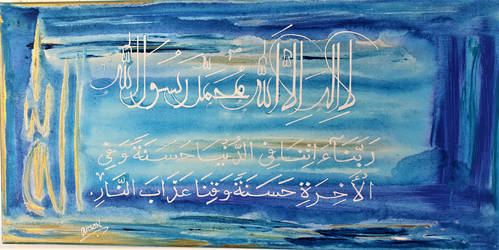 لا إله إلا الله محمد رسول الله
رَبَّنَآ ءَاتِنَا فِي الدُّنْيَا حَسَنَةً وَفِي
الْأَخِرَةِ حَسَنَةً وَقِنَا عَذَابَ النَّارِ.